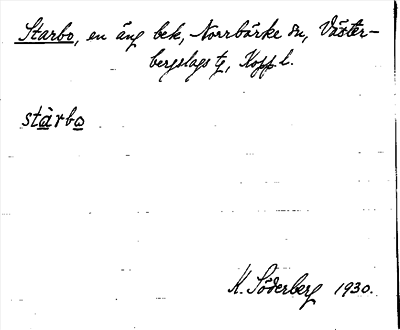 Starbo, en äng bek, Norrbärke sn, Väster-
bergslags tg, Kopp.l.
stàrbo
K. Söderberg 1930.